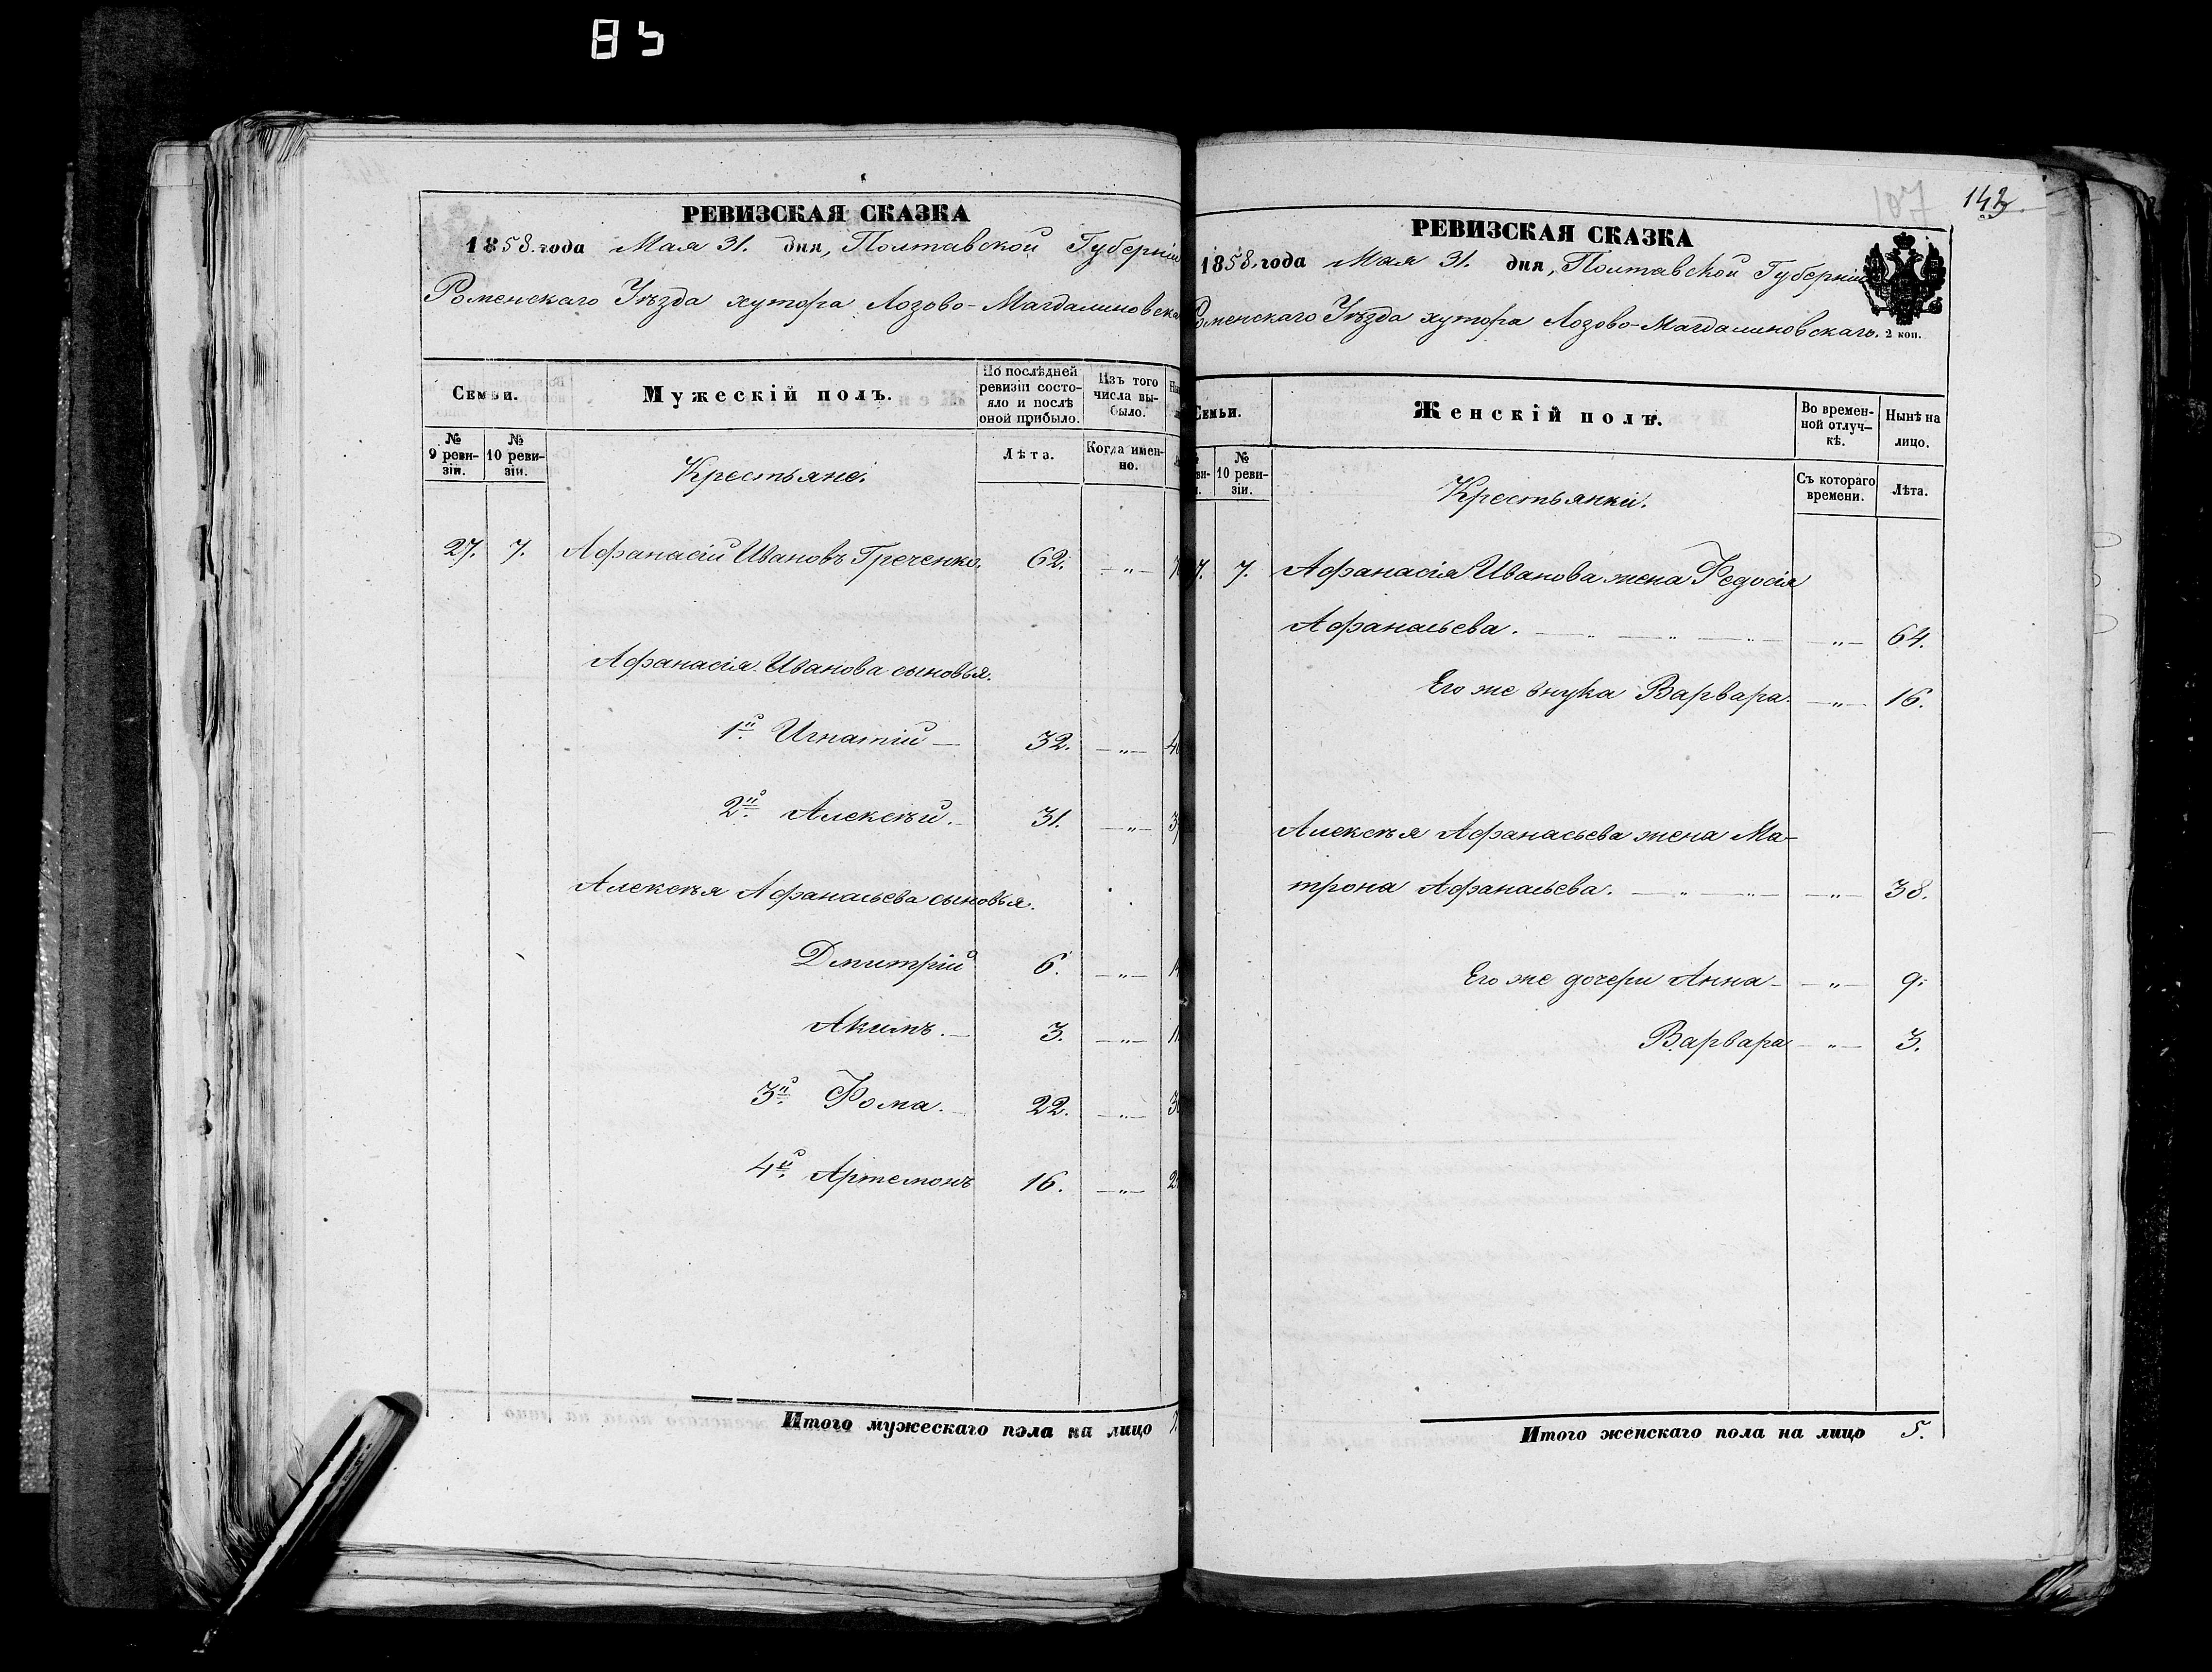 85
РЕВИЗСКАЯ СКАЗКА
1858. года Мая 31. дня, Полтавской Губерніи
Роменскаго Уѣзда хутора Лозово-Магдалиновска
Семьи.
Мужескій полъ.
По послѣдней ревизіи состояло и послѣ оной прибыло.
Изъ того числа выбыло.
№ 9 ревизіи.
№ 10 ревизіи.
Крестьяне.
Лѣта.
Когда именно.
27. 7. Афанасій Ивановъ Греченко. 62. — „ —
Афанасія Иванова сыновья.
1й Игнатій — 32. — „ —
2й Алексѣй. 31. — „ —
Алексѣя Афанасьева сыновья.
Дмитрій 6. — „ —
Акимъ. — 3. — „ —
3й Фома. 22. — „ —
4й Артемонъ 16. — „ —
Итого мужескаго пола на лицо
107
РЕВИЗСКАЯ СКАЗКА
1858. года Мая 31. дня, Полтавской Губерніи
Роменскаго Уѣзда хутора Лозово-Магдалиновскаго. 2 коп.
Семьи.
Женскій полъ.
Во временной отлучкѣ.
Нынѣ на лицо.
10 ревизіи.
Крестьянки.
Съ котораго времени.
Лѣта.
7. 7. Афанасія Иванова жена Федосія
Афанасьева. — „ — „ — „ — — „ — 64.
Его же внука Варвара. — „ — 16.
Алексѣя Афанасьева жена Ма-
трона Афанасьева. — „ — „ — — „ — 38.
Его же дочери Анна — — „ — 9.
Варвара — „ — 3.
Итого женскаго пола на лицо 5.